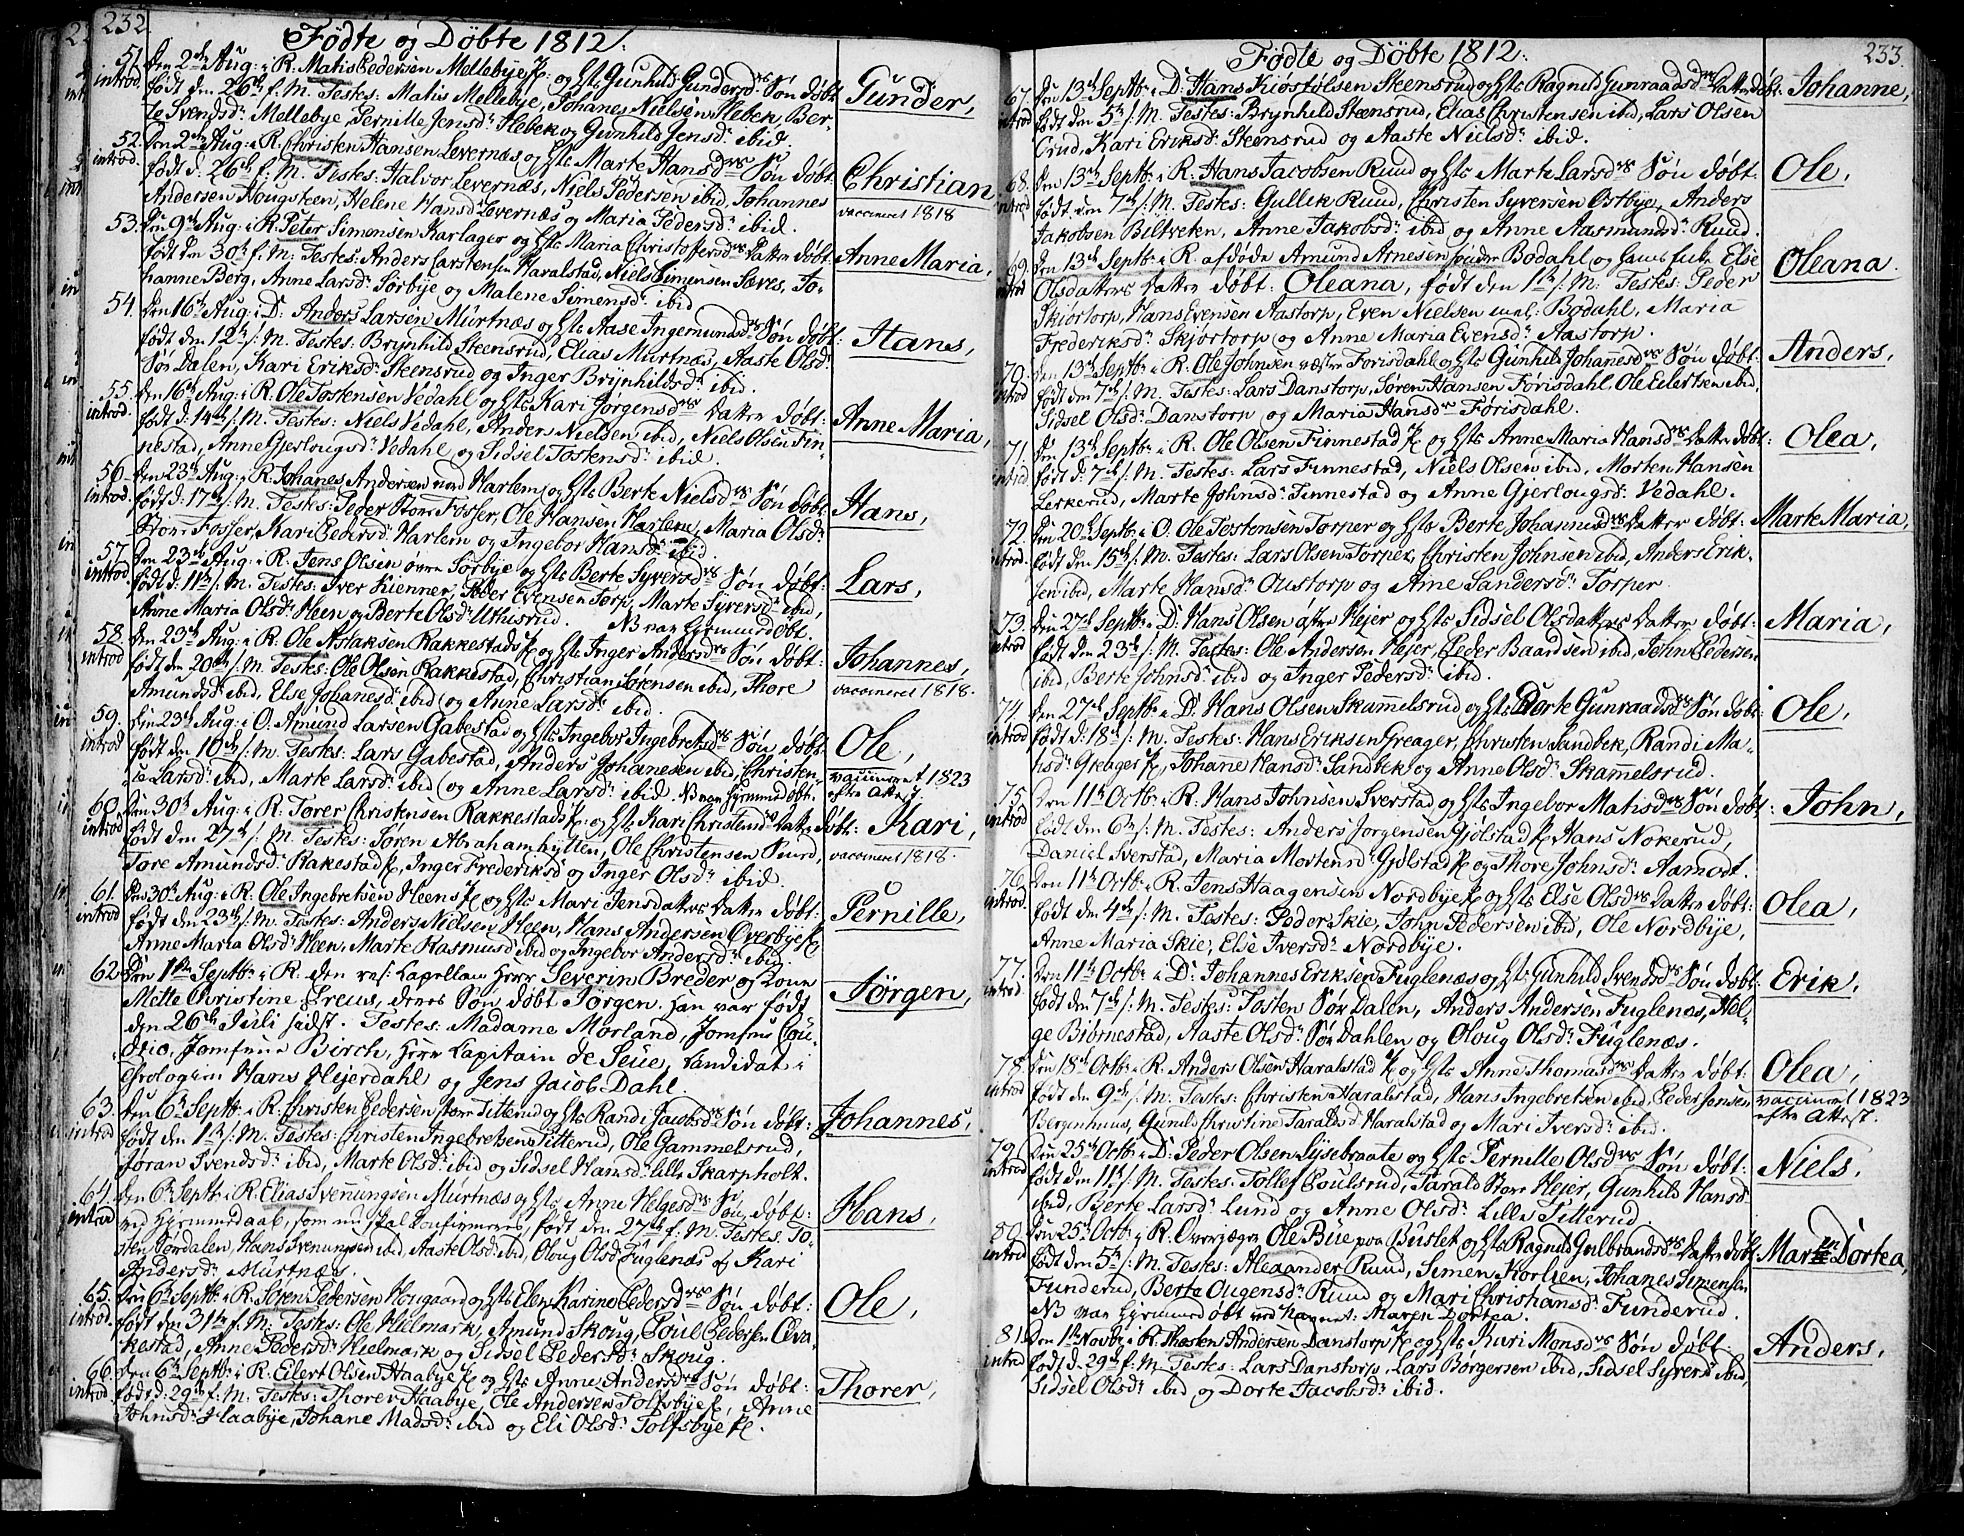 232.
Fødte og Døbte 1812.
51. Den 2den Aug: i R. Matis Pedersen Mellebye og Gunhild Gundersd: Søn døbt
introd. født den 26de f. M. Testes: Matis Mellebye, Johanes Nielsen Slebek, Ber-
te Svendsd: Mellebye, Pernille Jensd: Slebek og Gunhild Jensd: ibid.
Gunder,
52. Den 2den Aug: i R. Christen Hansen Levernæs og Marte Hansd: Søn døbt:
introd. født d. 26de f. M. Testes: Halvor Levernæs, Niels Pedersen ibid, Johannes
Andersen Hougsteen, Helene Hansd: Levernæs og Maria Pedersd: ibid.
Christian
vaccineret 1818
53. Den 9de Aug: i R. Peter Simensen Karlager og Maria Christofersd: Datter døbt:
født den 30te f. M. Testes: Anders Carstensen Haralstad, Niels Simensen Sæves, Jo-
hanne Berg, Anne Larsd: Sørbye og Malene Simensd: ibid
Anne Maria,
54. Den 16de Aug: i D: Anders Larsen Murtnæs og Aase Ingemundsd: Søn døbt:
født den 12te s. M. Testes: Brynhild Steensrud, Elias Murtnæs, Aaste Olsd:
Sør Dalen, Kari Eriksd: Skensrud og Inger Brynhildsd: ibid.
Hans,
55. Den 16de Aug: i R. Ole Tostensen Vedahl og Kari Jørgensd: Datter døbt:
introd. født d. 14de s. M. Testes: Niels Vedahl, Anders Nielsen ibid, Niels Olsen Fin-
nestad, Anne Gjerlougsd: Vedahl og Sidsel Tostensd: ibid.
Anne Maria,
56. Den 23de Aug: i R. Johanes Andersen Harlem og Berte Nielsd: Søn døbt
introd. født d. 17de s. M. Testes: Peder Store Fosser, Ole Hansen Harlem, Maria Olsd:
Store Fosser, Kari Pedersd: Harlem og Ingebor Hansd: ibid.
Hans,
57. Den 23de Aug: i R. Jens Olsen øvre Sørbye og Berte Syversd: Søn døbt:
introd født d. 11te s. M. Testes: Iver Kienner, Peder Evensen Torp, Marte Syversd: ibid,
Anne Maria Olsd: Heen og Berte Olsd: Uthusrud. NB var hjemmedøbt.
Lars,
58. Den 23de Aug: i R. Ole Aslaksen Rakkestad og Inger Andersd: Søn døbt:
introd født den 20de s. M. Testes: Ole Olsen Rakkestad, Christian Sørensen ibid, Thore
Amundsd: ibid, Else Johanesd: ibid og Anne Larsd: ibid.
Johannes,
vaccineret 1818.
59. Den 23de Aug: i O. Amund Larsen Gabestad og Ingebor Ingebretsd: Søn døbt:
introd født den 10de s. M. Testes: Lars Gabestad, Anders Johanesen ibid, Christen-
sa Larsd: ibid, Marte Larsd: ibid og Anne Larsd: ibid. NB var hjemmedøbt.
Ole,
vaccineret 1823
efter Attest
60. Den 30te Aug: i R. Torer Christensen Rakkestad og Kari Christensd: Datter døbt:
introd født den 27de s. M. Testes: Søren Abrahamhytten, Ole Christensen
Tore Amundsd: Rakestad, Inger Frederiksd: og Inger Olsd: ibid.
Kari,
vaccineret 1818.
61. Den 30te Aug: i R. Ole Ingebretsen Heen og Mari Jensdatters Datter døbt:
introd født den 23de s. M. Testes: Anders Nielsen Heen, Hans Andersen Overbye
Anne Maria Olsd: Heen, Marte Rasmusd: ibid og Ingebor Andersd: ibid.
Pernille,
62 Den 1ste Septbr i R. den res: Capellan Herr Severin Breder og Kone
Mette Christine Preus, deres Søn døbt Jørgen. han var født
den 26de Juli sidst. Testes: Madame Morland, Jomfrue
Jomfrue Birch, Herr Capitain de Seue, Candidat i
Theologien Hans Hejerdahl og Jens Jacob Dahl.
Jørgen,
63. Den 6te Septbr i R. Christen Pedersen store Titterud og Randi Jacobsd: Søn døbt:
introd født den 1ste s. M. Testes: Christen Ingebretsen Titterud, Ole Gammelsrud,
Jøran Svendsd: ibid, Marte Olsd: ibid og Sidsel Hansd: lille Skarpholt.
Johannes,
64. Den 6te Septbr i R. Elias Svenungsen Murtnæs og Anne Helgesd: Søn, døbt:
introd ved hjemmedaab, som nu skal Confirmeres, født den 27de f. M. Testes: To-
sten Sørdalen, Hans Svenungsen ibid, Aaste Olsd: ibid, Oloug Olsd: Fuglenæs og Kari
Andersd: Murtnæs.
Hans,
65. Den 6te Septbr i R. Søren Pedersen Hougaard og Elen Karine Pedersd: Søn døbt:
introd. født den 31te f. M. Testes: Ole Hielmark, Amund Skoug, Poul Pedersen Ova-
kestad, Anne Pedersd: Hielmark og Sidsel Pedersd: Skoug.
Ole,
66. Den 6te Septbr i R. Eilert Olsen Haabye og Anne Andersd: Søn døbt:
introd. født d. 29de f. M. Testes: Thorer Haabye, Ole Andersen Tolfsbye, Anne
Johnsd: Haabye, Johane Madsd: ibid og Eli Olsd: Tolfsbye
Thorer,
233.
Fødte og Døbte 1812.
67. Den 13de Septbr i D: Hans Kiøstolsen Steensrud og Ragnild Gunraadsd: Datter døbt:
introd født den 5te s. M. Testes: Brynhild Steensrud, Elias Christensen ibid, Lars Olsen
Crud, Kari Eriksd: Steensrud og Aaste Nielsd: ibid.
Johanne,
68. Den 13de Septbr i R. Hans Jacobsen Ruud og Marte Larsd: Søn døbt.
introd født den 7de s. M. Testes: Gullik Ruud, Christen Syversen Østbye, Anders
Jakobsen Biltveten, Anne Jakobsd: ibid og Anne Aasmundsd: Ruud.
Ole,
69 Den 13de Septbr i R. afdøde Amund Arnesen søndre Bodahl og Enke Else
introd Olsdatters Datter døbt: Oleana, født den 1ste s. M. Testes: Peder
Skjørtorp, Hans Evensen Aastorp, Even Nielsen Bodahl, Maria
Frederiksd: Skjørtorp og Anne Maria Evensd: Aastorp.
Oleana.
70. Den 13de Septbr i R. Ole Johnsen næstre Forisdahl og Gunhild Johanesd: Søn døbt:
introd født den 7de s. M. Testes: Lars Danstorp, Søren Hansen Forisdahl, Ole Eilertsen ibid,
Sidsel Olsd: Danstorp og Maria Hansd: Førisdahl.
Anders,
71. Den 13de Septbr i R. Ole Olsen Finnestad og Anne Maria Hansd: Datter døbt:
introd født d: 7de s. M. Testes: Lars Finnestad, Niels Olsen ibid, Morten Hansen
Lerkerud, Marte Johnsd: Finnestad og Anne Gjerlougsd: Vedahl.
Olea,
72. Den 20de Septbr i O. Ole Tostensen Torper og Berte Johannesd: Datter døbt:
introd. født den 15de s. M. Testes: Lars Olsen Torper, Christen Johnsen ibid, Anders Erik-
sen ibid, Marte Hansd: Olstorp og Arne Sandersd: Torper.
Marte Maria,
73. Den 27de Septbr i D. Hans Olsen østre Hejer og Sidsel Olsdatters Datter døbt:
introd født den 23de s. M. Testes: Ole Andersen Hejer, Peder Baardsen ibid, John Pedersen
ibid, Berte Johnsd: ibid og Inger Pedersd: ibid.
Maria,
74. Den 27de Septbr i D: Hans Olsen Skammelsrud og Dorte Gunraadsd: Søn døbt:
introd født d: 18de s. M. Testes: Hans Eriksen Greager, Christen Sandbek, Randi Ma-
tisd: Greager, Johane Hansd: Sandbek og Anne Olsd: Skammelsrud.
Ole,
75. Den 11te Octbr i R. Hans Johnsen Sverstad og Ingebor Matisd: Søn døbt:
introd født den 6te s. M. Testes: Anders Jorgensen Gjølstad, Hans Nokerud,
Daniel Sverstad, Maria Mortensd: Gjølstad og Thore Johnsd: Aamodt.
John,
76. Den 11te Octbr i R. Jens Haagensen Nordbye og Else Olsd: Datter døbt:
introd. født den 4de s. M. Testes: Peder Skie, John Pedersen ibid, Ole Nordbye,
Anne Maria Skie, Else Iversd: Nordbye.
Olea,
77. Den 11te Octbr i D: Johannes Eriksen Fuglenæs og Gunhild Svendsd: Søn døbt:
introd. født den 7de s. M. Testes: Tosten Sør Dalen, Anders Andersen Fuglenæs, Hel-
ge Biørnestad, Aaste Olsd: Sør Dahlen og Oloug Olsd: Fuglenæs.
Erik,
78. Den 18de Octbr i R. Anders Olsen Haralstad og Anne Thomasd: Datter døbt:
introd født den 9de s. M. Testes: Christen Haralstad, Hans Ingebretsen ibid, Peder Jensen
Bergenhuus, Gunild Christine Taralsd: Haralstad og Mari Iversd: ibid.
Olea,
vaccineret 1823
efter Attest.
79. Den 25de Octbr i D: Peder Olsen Lysebraate og Pernille Olsd: Søn døbt:
introd født den 11te s. M. Testes: Tollef Poulsrud, Tarald Store Hejer, Gunhild Hansd:
ibid, Berte Larsd: Lund og Anne Olsd: Lille Titterud
Niels,
80 Den 25de Octbr i R. Overjæger Ole Bue paa Buslet og Ragnild Gulbrandsd: Datter døbt
introd født den 5te s. M. Testes: Alexander Ruud, Simen Korlsen, Johanes Simensen
Funderud, Berte Ougensd: Ruud og Mari Christiansd: Funderud.
NB var hjemmedøbt ved Navnet: Maren Dortea.
Maren Dortea,
81. Den 1ste Novbr i R. Thosten Andersen Danstorp og Kari Monsd: Søn døbt.
introd født d. 29de f. M. Testes: Lars Danstorp, Lars Borgersen ibid, Sidsel Syversd: ibid,
Sidsel Olsd: ibid og Dorte Jacobsd: ibid.
Anders,